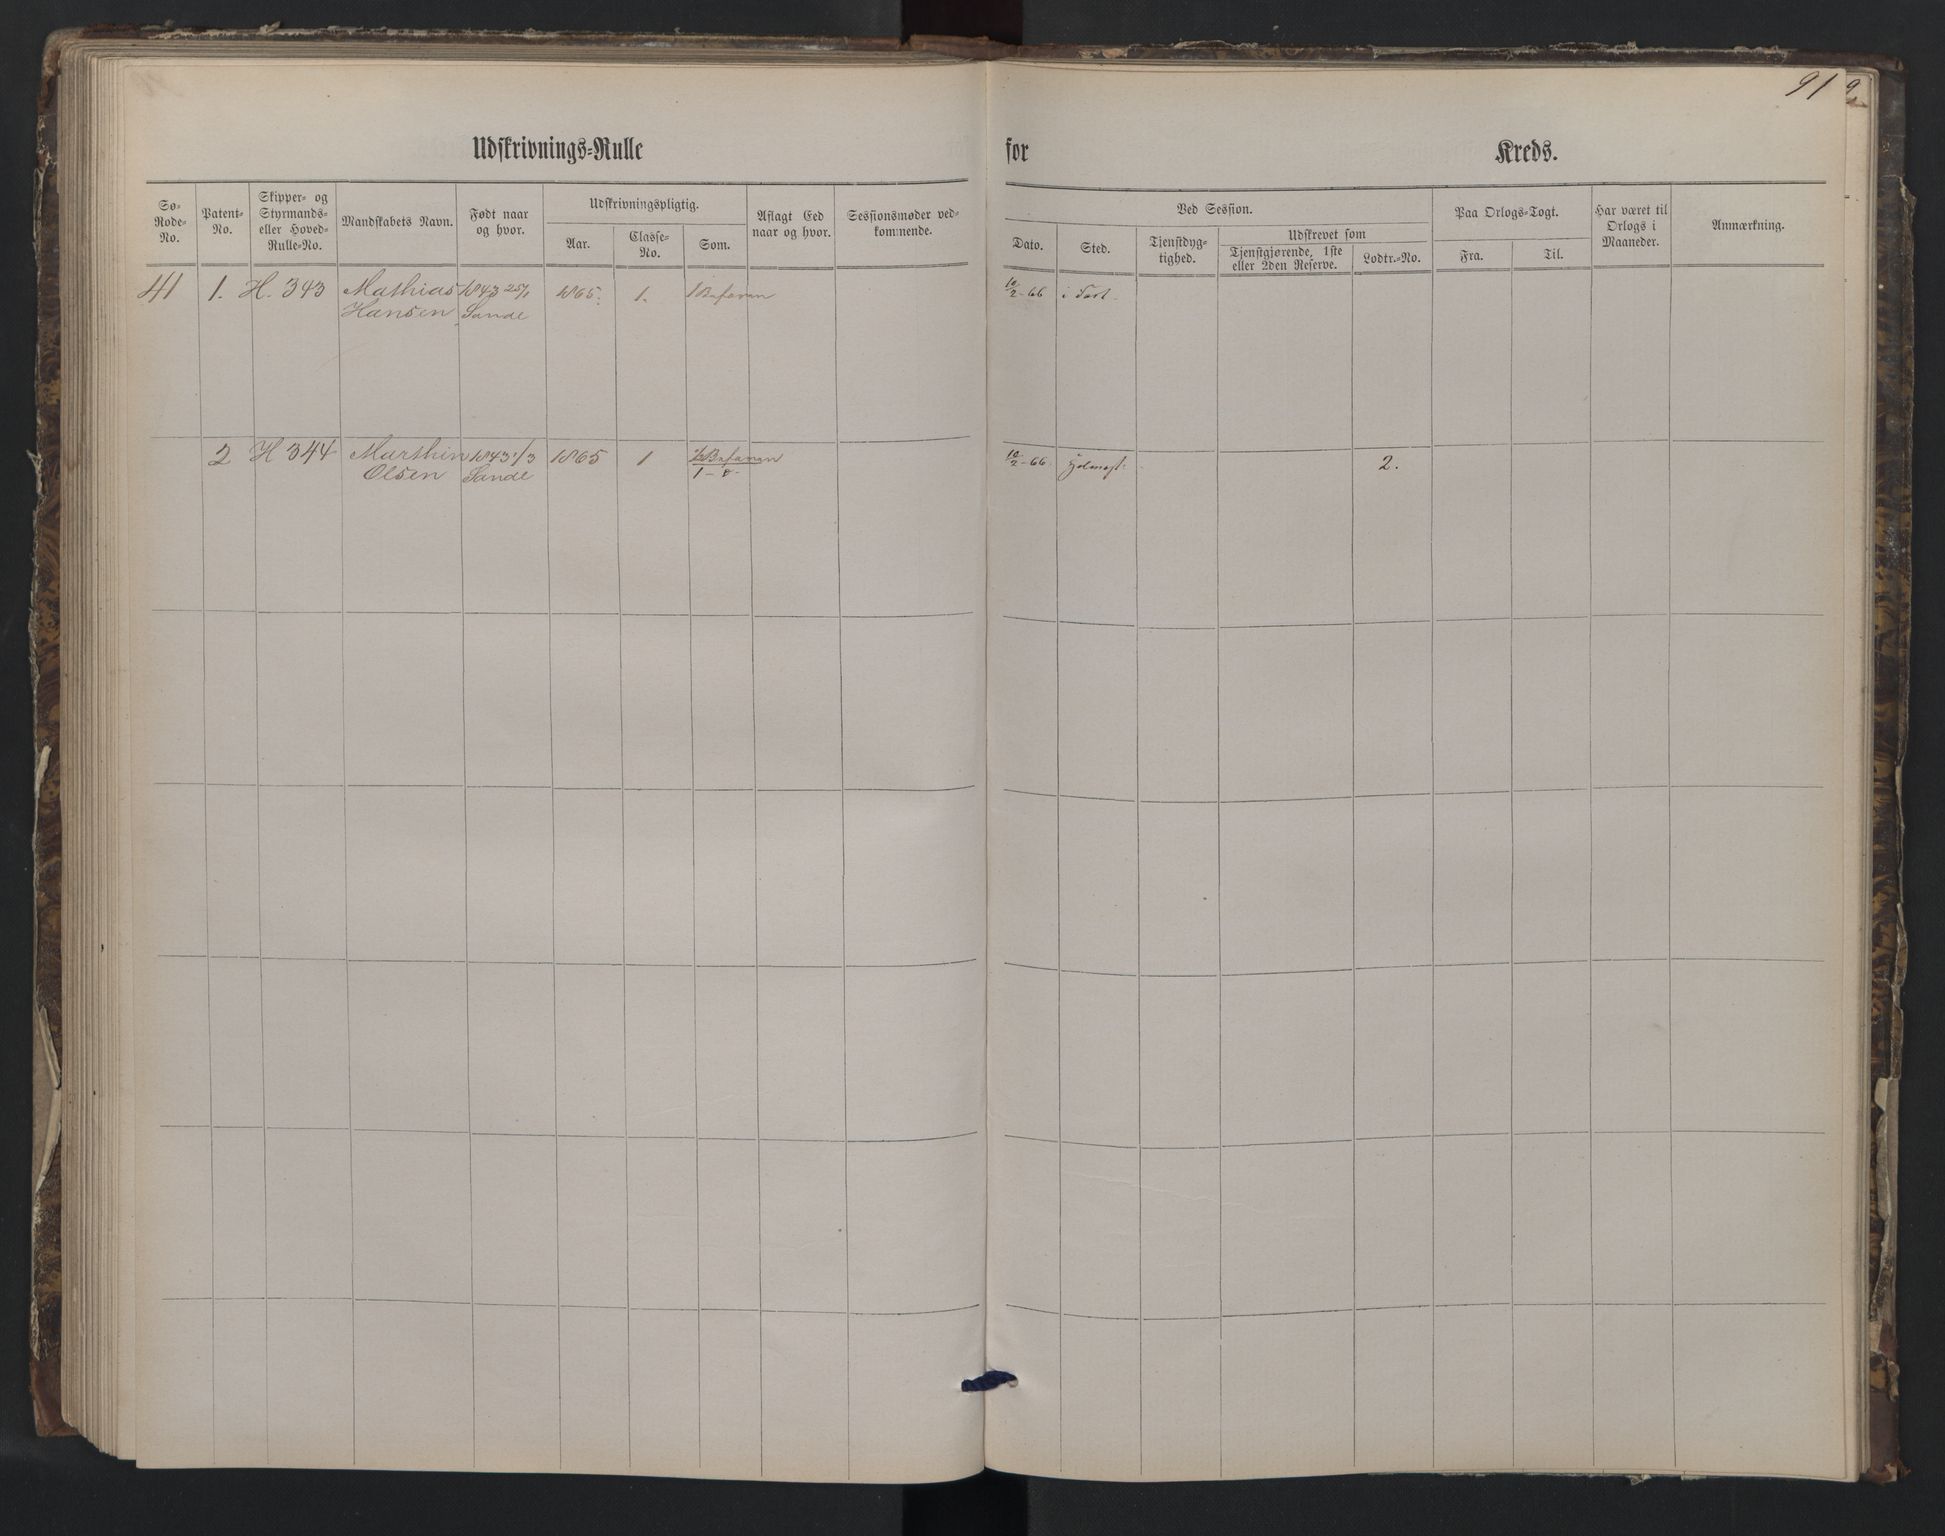 91
Udskrivnings-Rulle for Kreds.
Sø-Rode-No.
Patent-No.
Skipper- og Styrmands- eller Hoved-Rulle-No.
Mandskabets Navn.
Født naar og hvor.
Udskrivningspligtig.
Aar.
Classe-No.
Som.
Aflagt Eed naar og hvor.
Sessionsmøder vedkommende.
Ved Session.
Dato.
Sted.
Tjenstdygtighed.
Udskrevet som
Tjenstgjørende, 1ste eller 2den Reserve.
Lodtr.-No.
Paa Orlogs-Togt.
Fra.
Til.
Har været til Orlogs i Maaneder.
Anmærkning.
41 1. H. 343 Mathias 1843 25/1 1865. 1. 1 Befaren 10/2-66 i Fart.
Hansen Sande
2 H 344 Marthin 1843 1/3 1865 1 Befaren 10/2-66 2.
Olsen Sande 1